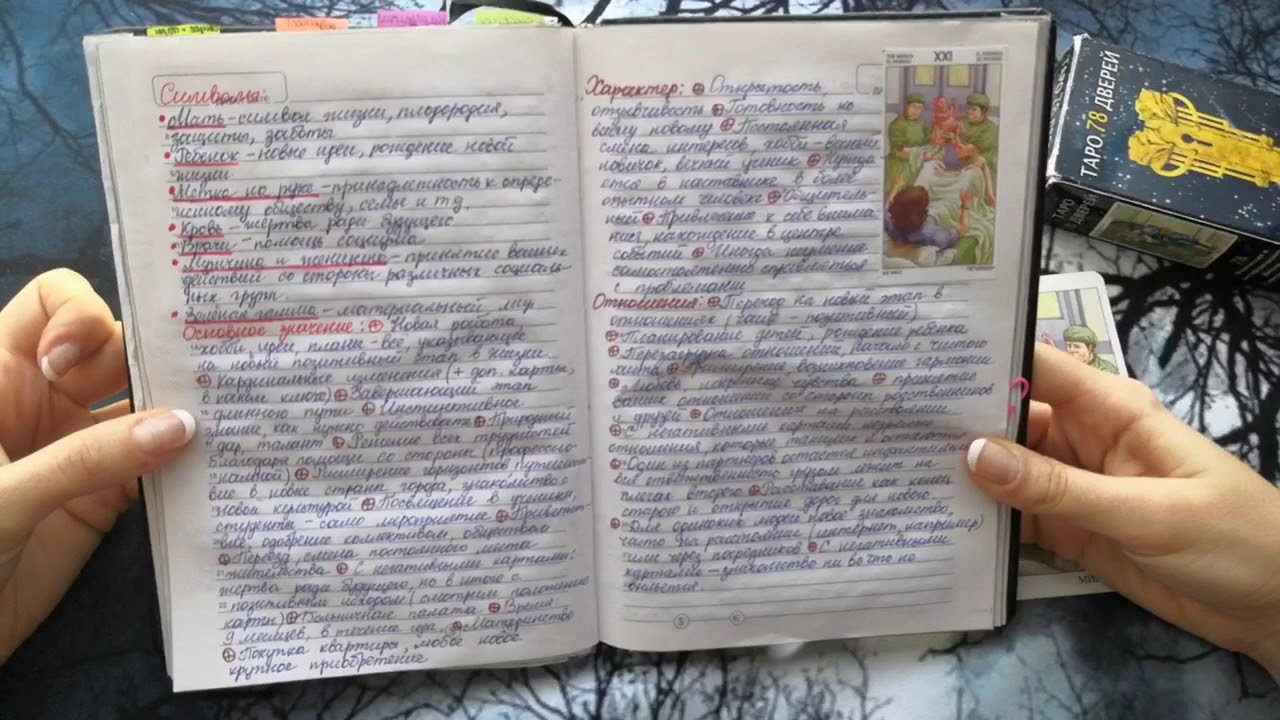 Символы:
Мать - символ жизни, плодородия,
защиты, заботы
Ребенок - новые идеи, рождение новой
жизни
Метка на руке - принадлежность к опреде-
ленному обществу, семье и т.д.
Кровь - жертва ради будущего
Врачи - помощь социума
Мужчина и женщина - принятие ваших
действий со стороны различных социаль-
ных групп.
Зелёная - материальный мир
Основное значение: ⊕ Новая работа
хобби, идеи, планы - все, указывающее
на новый позитивный этап в жизни
⊕ Кардинальные изменения (+ доп. карты,
в каком ключе) ⊕ Завершающий этап
длинного пути ⊕ Инстинктивное
знание, как нужно действовать ⊕ Природный
дар, талант ⊕ Решение всех трудностей
благодаря помощи со стороны (профессио-
нальной) ⊕ Расширение горизонтов путешест-
вие в новые страны, города, знакомство с
новой культурой ⊕ Посвящение в ученики,
студенты - само мероприятие ⊕ Приветст-
вие, одобрение коллективом, обществом
⊕ Переезд, смена постоянного места
жительства ⊕ С негативными картами:
жертва ради будущего, но в итоге с
позитивным исходом (смотрим положение
карты) ⊕ Больничная палата ⊕ Время:
9 месяцев, в течение года ⊕ Материнство
⊕ Покупка квартиры, любое новое
крупное приобретение
Характер: ⊕ Открытость,
отзывчивость ⊕ Готовность ко
всему новому ⊕ Постоянная
смена интересов, хобби - вечный
новичок, вечный ученик ⊕ Нужда
ется в наставнике, в более
опытном человеке ⊕ Общитель
ный ⊕ Привлечение к себе внима
ния, нахождение в центре
событий ⊕ Иногда неумение
самостоятельно справляться
с проблемами
Отношения: ⊕ Переход на новый этап в
отношениях (чаще - позитивный)
⊕ Планирование детей, рождение ребенка
⊕ Перезагрузка отношений, начало с чистого
листа ⊕ возникновение гармонии
⊕ Любовь, искренние чувства ⊕ принятие
ваших отношений со стороны родственников
и друзей ⊕ Отношения на расстоянии
⊕ С негативными картами
отношения, которые такими и останутся
⊕ Один из партнеров остается инфантильным
вся ответственность грузом лежит на
плечах второго ⊕ Расставание как конец
старого и открытие дорог для нового
⊕ Для одиноких людей новое знакомство,
часто на расстоянии (интернет, например)
или через посредников ⊕ С негативными
картами - знакомство ни во что не
выльется.
XXI
ТАРО 78 ДВЕРЕЙ
ТАРО
ДВЕРЕЙ